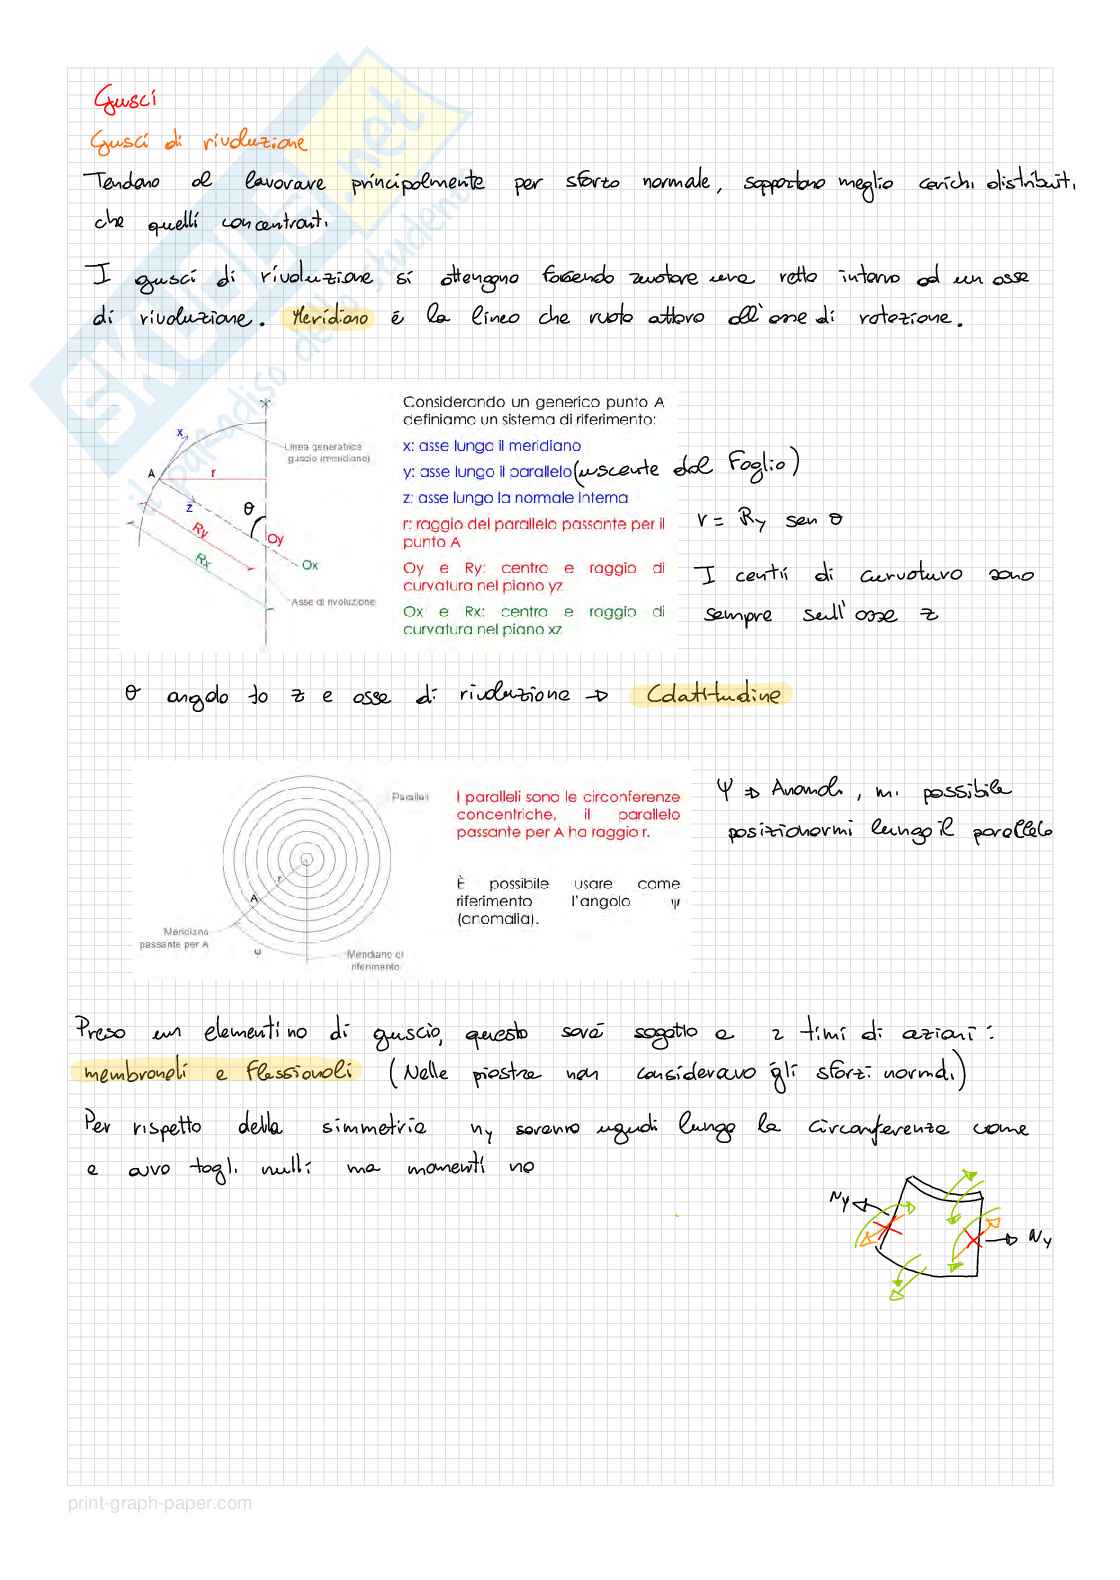 Gusci
Gusci di rivoluzione
Tendono al lavorare principalmente per sforzo normale, sopportano meglio carichi distribuiti
che quelli concentrati.
I gusci di rivoluzione si ottengono facendo ruotare una retta intorno ad un asse
di rivoluzione. Meridiano é la linea che ruota attorno all'asse di rotazione.
Considerando un generico punto A
definiamo un sistema di riferimento:
x: asse lungo il meridiano
y: asse lungo il parallelo (uscente dal Foglio)
z: asse lungo la normale interna
r: raggio del parallelo passante per il
punto A
Oy e Ry: centro e raggio di
curvatura nel piano yz
Ox e Rx: centro e raggio di
curvatura nel piano xz
x
A
r
z
θ
Ry
Rx
Oy
Ox
Linea generatrice
guscio (meridiano)
Asse di rivoluzione
r = Ry sen θ
I centri di curvatura sono
sempre sull'asse z
θ angolo to z e asse di rivoluzione → Colatitudine
Paralleli
r
A
Meridiano
passante per A
ψ
Meridiano di
riferimento
I paralleli sono le circonferenze
concentriche, il parallelo
passante per A ha raggio r.
È possibile usare come
riferimento l'angolo ψ
(anomalia).
ψ ⇒ Anomali, mi possibile
posizionarmi lungo il parallelo
Preso un elementino di guscio, questo sará soggetto a 2 timi di azioni:
membranali e flessionali (Nelle piastre non consideravo gli sforzi normali)
Per rispetto della simmetria ny saranno uguali lungo la circonferenza come
e avro tagli nulli ma momenti no
Ny
Ny
SKUOLA.net
il paradiso dello studente
print-graph-paper.com